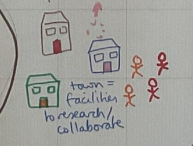 town =
facilities
to research/
collaborate